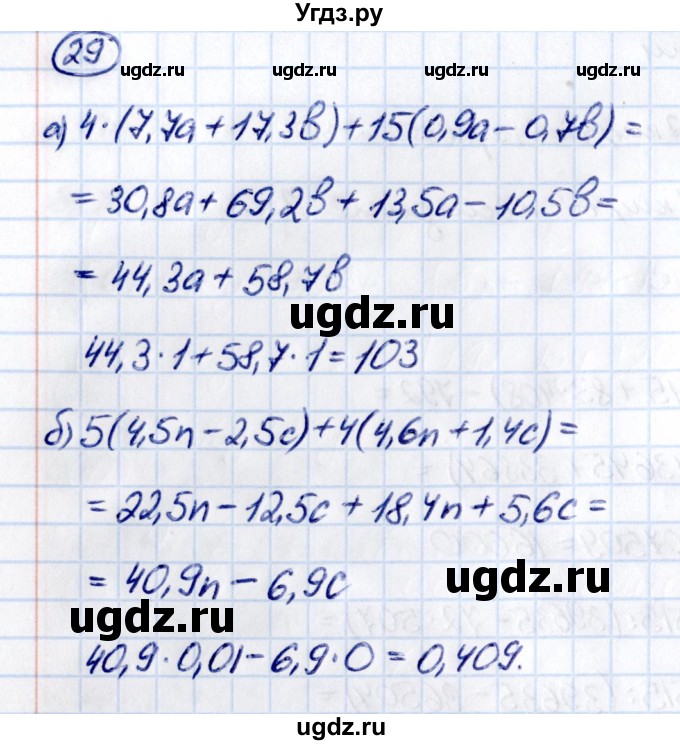 Угдз.ру
29
ugdz.ru ugdz.ru ugdz.ru
а) 4·(7,7а+17,3в)+15(0,9а-0,7в)=
=30,8а+69,2в+13,5а-10,5в=
ugdz.ru ugdz.ru
=44,3а+58,7в
ugdz.ru
44,3·1+58,7·1=103
б) 5(4,5n-2,5c)+4(4,6n+1,4c)=
=22,5n-12,5c+18,4n+5,6c=
=40,9n-6,9c
ugdz.ru
ugdz.ru
40,9·0,01-6,9·0=0,409.
ugdz.ru